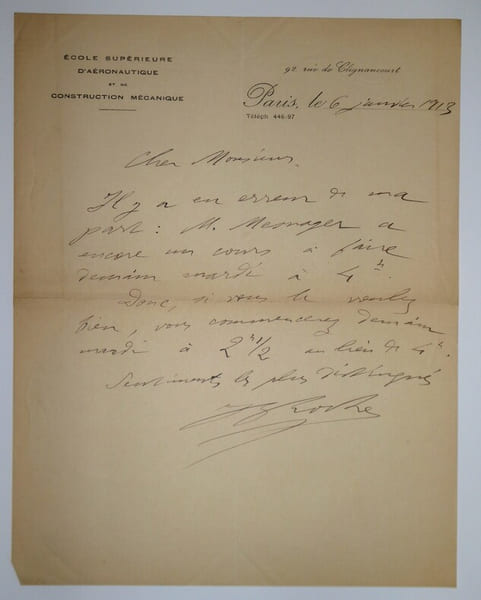 ÉCOLE SUPÉRIEURE
D'AÉRONAUTIQUE
ET DE
CONSTRUCTION MÉCANIQUE
92, rue de Clignancourt
Paris, le 6 janvier 1913
Téléph 446-97
Cher Monsieur,
Il y a eu erreur de ma
part : M. Mesnager a
encore un cours à faire
demain mardi à 4 h.
Donc, si vous le voulez
bien, vous commencerez demain
mardi à 2 h 1/2 au lieu de 4 h.
Sentiments les plus distingués
Roche